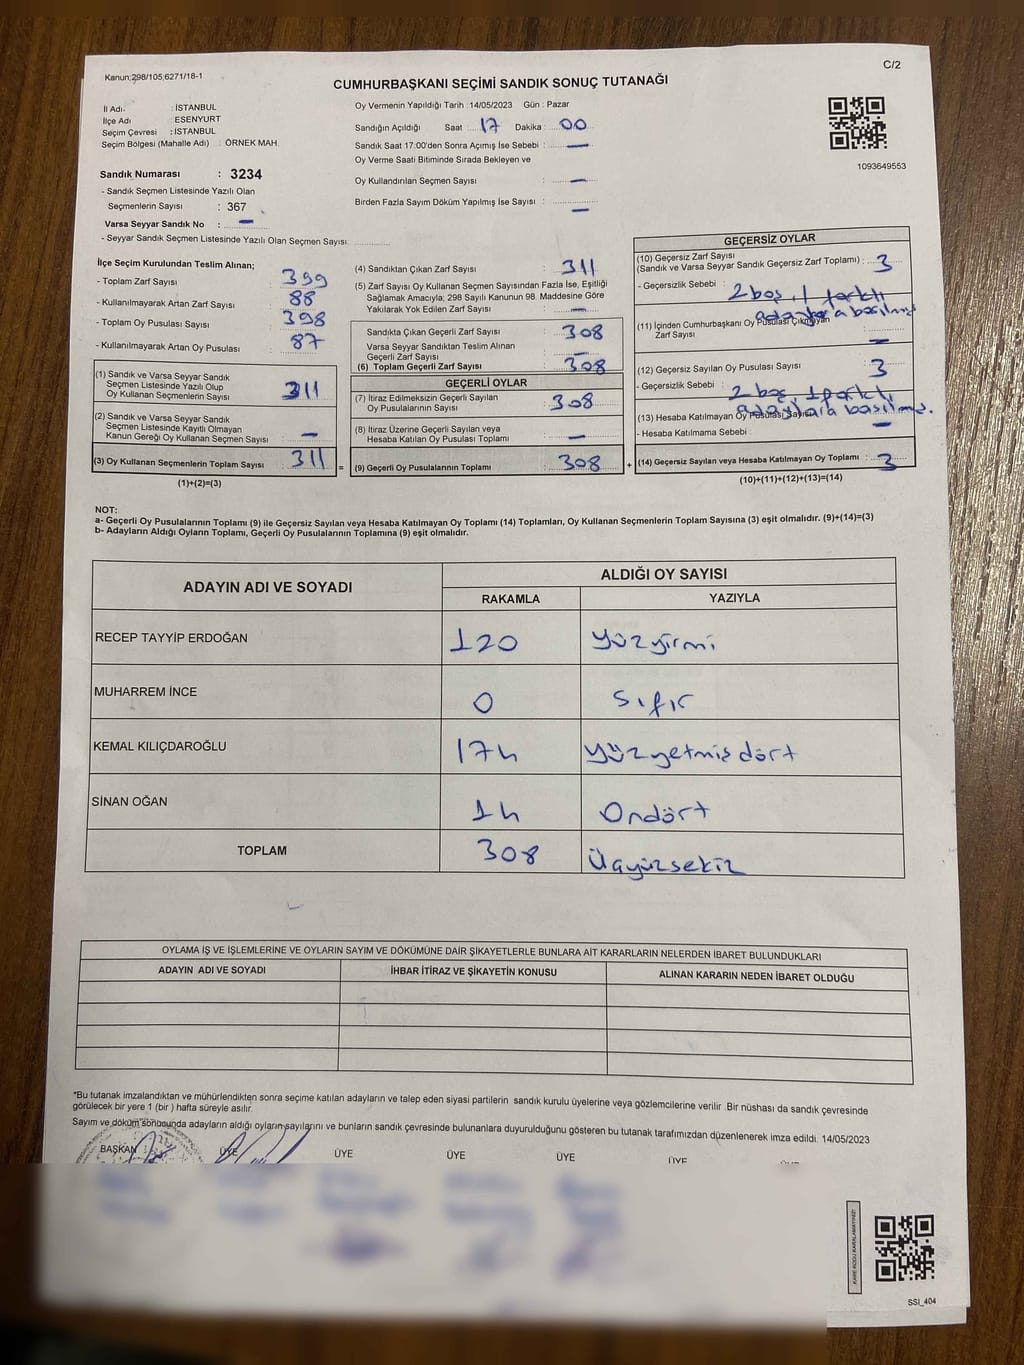 Kanun:298/105,6271/18-1
C/2
CUMHURBAŞKANI SEÇİMİ SANDIK SONUÇ TUTANAĞI
İl Adı : İSTANBUL
İlçe Adı : ESENYURT
Seçim Çevresi : İSTANBUL
Seçim Bölgesi (Mahalle Adı) : ÖRNEK MAH.
Sandık Numarası : 3234
- Sandık Seçmen Listesinde Yazılı Olan
Seçmenlerin Sayısı : 367
Varsa Seyyar Sandık No : —
- Seyyar Sandık Seçmen Listesinde Yazılı Olan Seçmen Sayısı:
Oy Vermenin Yapıldığı Tarih : 14/05/2023 Gün : Pazar
Sandığın Açıldığı Saat : 17 Dakika : 00
Sandık Saat 17:00'den Sonra Açımış İse Sebebi : —
Oy Verme Saati Bitiminde Sırada Bekleyen ve
Oy Kullandırılan Seçmen Sayısı : —
Birden Fazla Sayım Döküm Yapılmış İse Sayısı : —
1093649553
İlçe Seçim Kurulundan Teslim Alınan;
- Toplam Zarf Sayısı : 399
- Kullanılmayarak Artan Zarf Sayısı : 88
- Toplam Oy Pusulası Sayısı : 398
- Kullanılmayarak Artan Oy Pusulası : 87
(1) Sandık ve Varsa Seyyar Sandık
Seçmen Listesinde Yazılı Olup
Oy Kullanan Seçmenlerin Sayısı : 311
(2) Sandık ve Varsa Seyyar Sandık
Seçmen Listesinde Kayıtlı Olmayan
Kanun Gereği Oy Kullanan Seçmen Sayısı : —
(3) Oy Kullanan Seçmenlerin Toplam Sayısı : 311
(1)+(2)=(3)
=
(4) Sandıktan Çıkan Zarf Sayısı : 311
(5) Zarf Sayısı Oy Kullanan Seçmen Sayısından Fazla İse, Eşitliği
Sağlamak Amacıyla; 298 Sayılı Kanunun 98. Maddesine Göre
Yakılarak Yok Edilen Zarf Sayısı : —
Sandıkta Çıkan Geçerli Zarf Sayısı : 308
Varsa Seyyar Sandıktan Teslim Alınan
Geçerli Zarf Sayısı : —
(6) Toplam Geçerli Zarf Sayısı : 308
GEÇERLİ OYLAR
(7) İtiraz Edilmeksizin Geçerli Sayılan
Oy Pusulalarının Sayısı : 308
(8) İtiraz Üzerine Geçerli Sayılan veya
Hesaba Katılan Oy Pusulası Toplamı : —
(9) Geçerli Oy Pusulalarının Toplamı : 308
+
GEÇERSİZ OYLAR
(10) Geçersiz Zarf Sayısı
(Sandık ve Varsa Seyyar Sandık Geçersiz Zarf Toplamı) : 3
- Geçersizlik Sebebi : 2 boş, 1 farklı
adaylara basılmış
(11) İçinden Cumhurbaşkanı Oy Pusulası Çıkmayan
Zarf Sayısı : —
(12) Geçersiz Sayılan Oy Pusulası Sayısı : 3
- Geçersizlik Sebebi : 2 boş, 1 farklı
adaylara basılmış.
(13) Hesaba Katılmayan Oy Pusulası Sayısı : —
- Hesaba Katılmama Sebebi :
(14) Geçersiz Sayılan veya Hesaba Katılmayan Oy Toplamı : 3
(10)+(11)+(12)+(13)=(14)
NOT:
a- Geçerli Oy Pusulalarının Toplamı (9) ile Geçersiz Sayılan veya Hesaba Katılmayan Oy Toplamı (14) Toplamları, Oy Kullanan Seçmenlerin Toplam Sayısına (3) eşit olmalıdır. (9)+(14)=(3)
b- Adayların Aldığı Oyların Toplamı, Geçerli Oy Pusulalarının Toplamına (9) eşit olmalıdır.
ADAYIN ADI VE SOYADI
ALDIĞI OY SAYISI
RAKAMLA YAZIYLA
RECEP TAYYİP ERDOĞAN 120 Yüzyirmi
MUHARREM İNCE 0 Sıfır
KEMAL KILIÇDAROĞLU 174 Yüzyetmişdört
SİNAN OĞAN 14 Ondört
TOPLAM 308 Üçyüzsekiz
OYLAMA İŞ VE İŞLEMLERİNE VE OYLARIN SAYIM VE DÖKÜMÜNE DAİR ŞİKAYETLERLE BUNLARA AİT KARARLARIN NELERDEN İBARET BULUNDUKLARI
ADAYIN ADI VE SOYADI İHBAR İTİRAZ VE ŞİKAYETİN KONUSU ALINAN KARARIN NEDEN İBARET OLDUĞU
*Bu tutanak imzalandıktan ve mühürlendikten sonra seçime katılan adayların ve talep eden siyasi partilerin sandık kurulu üyelerine veya gözlemcilerine verilir. Bir nüshası da sandık çevresinde
görülecek bir yere 1 (bir ) hafta süreyle asılır.
Sayım ve döküm sonucunda adayların aldığı oyların sayılarını ve bunların sandık çevresinde bulunanlara duyurulduğunu gösteren bu tutanak tarafımızdan düzenlenerek imza edildi. 14/05/2023
BAŞKAN ÜYE ÜYE ÜYE ÜYE ÜYE
KARE KODU KARALAMAYINIZ!
SSI_404